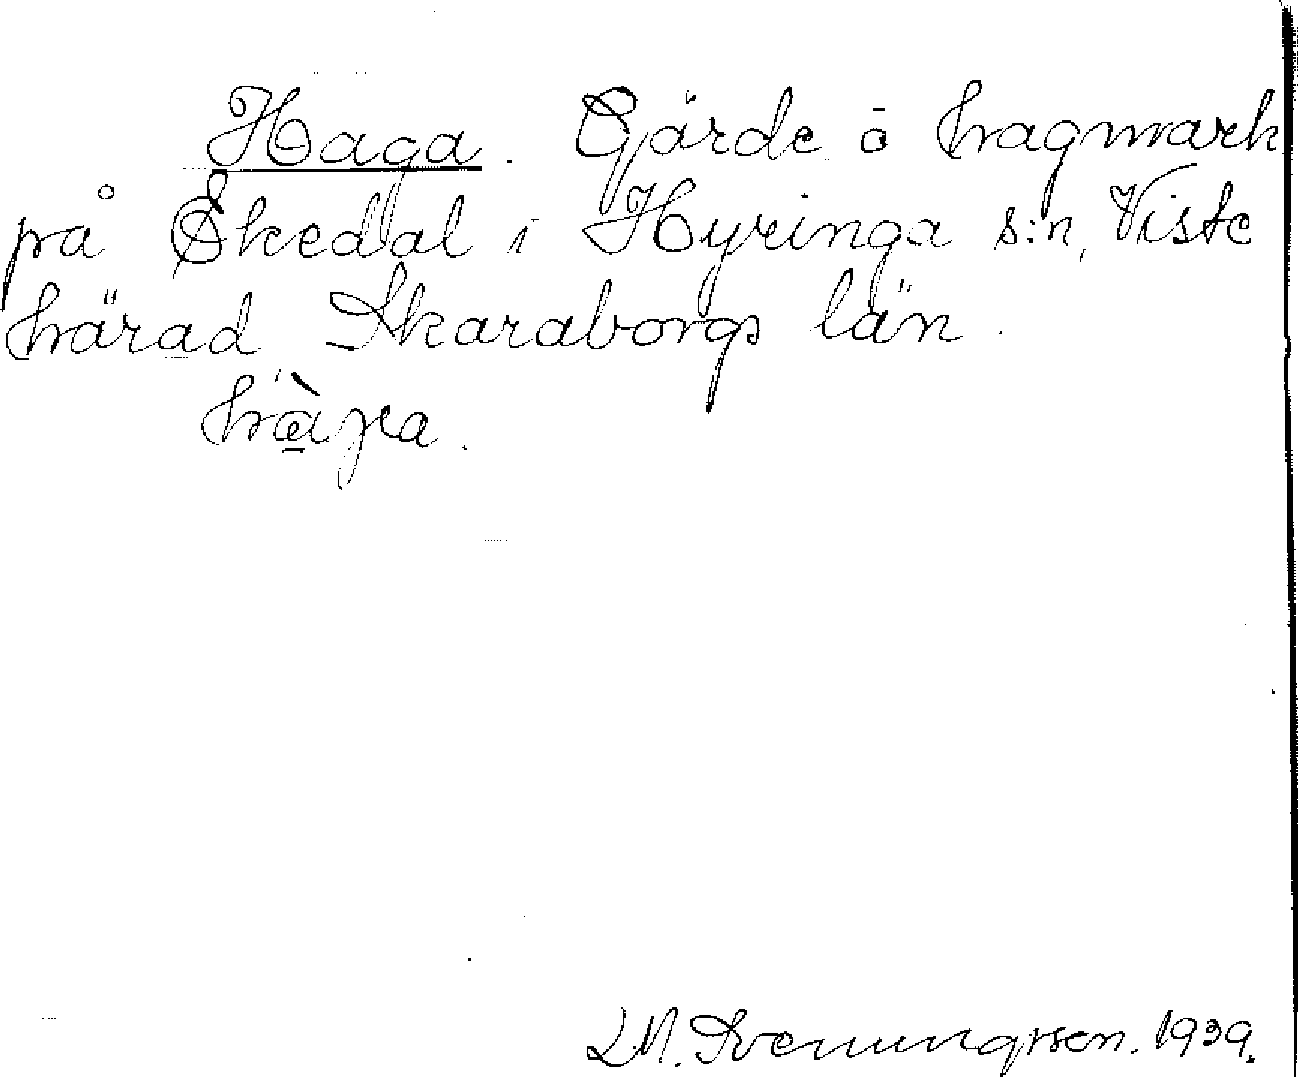 Haga. Gärde o hagmark
på Skedal i Hyringa s:n, Viste
härad Skaraborgs län.
hàga.
L M. Svenungsson. 1939.